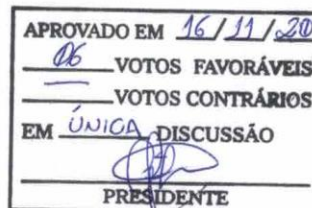 APROVADO EM 16/11/20
06 VOTOS FAVORÁVEIS
— VOTOS CONTRÁRIOS
EM ÚNICA DISCUSSÃO
PRESIDENTE